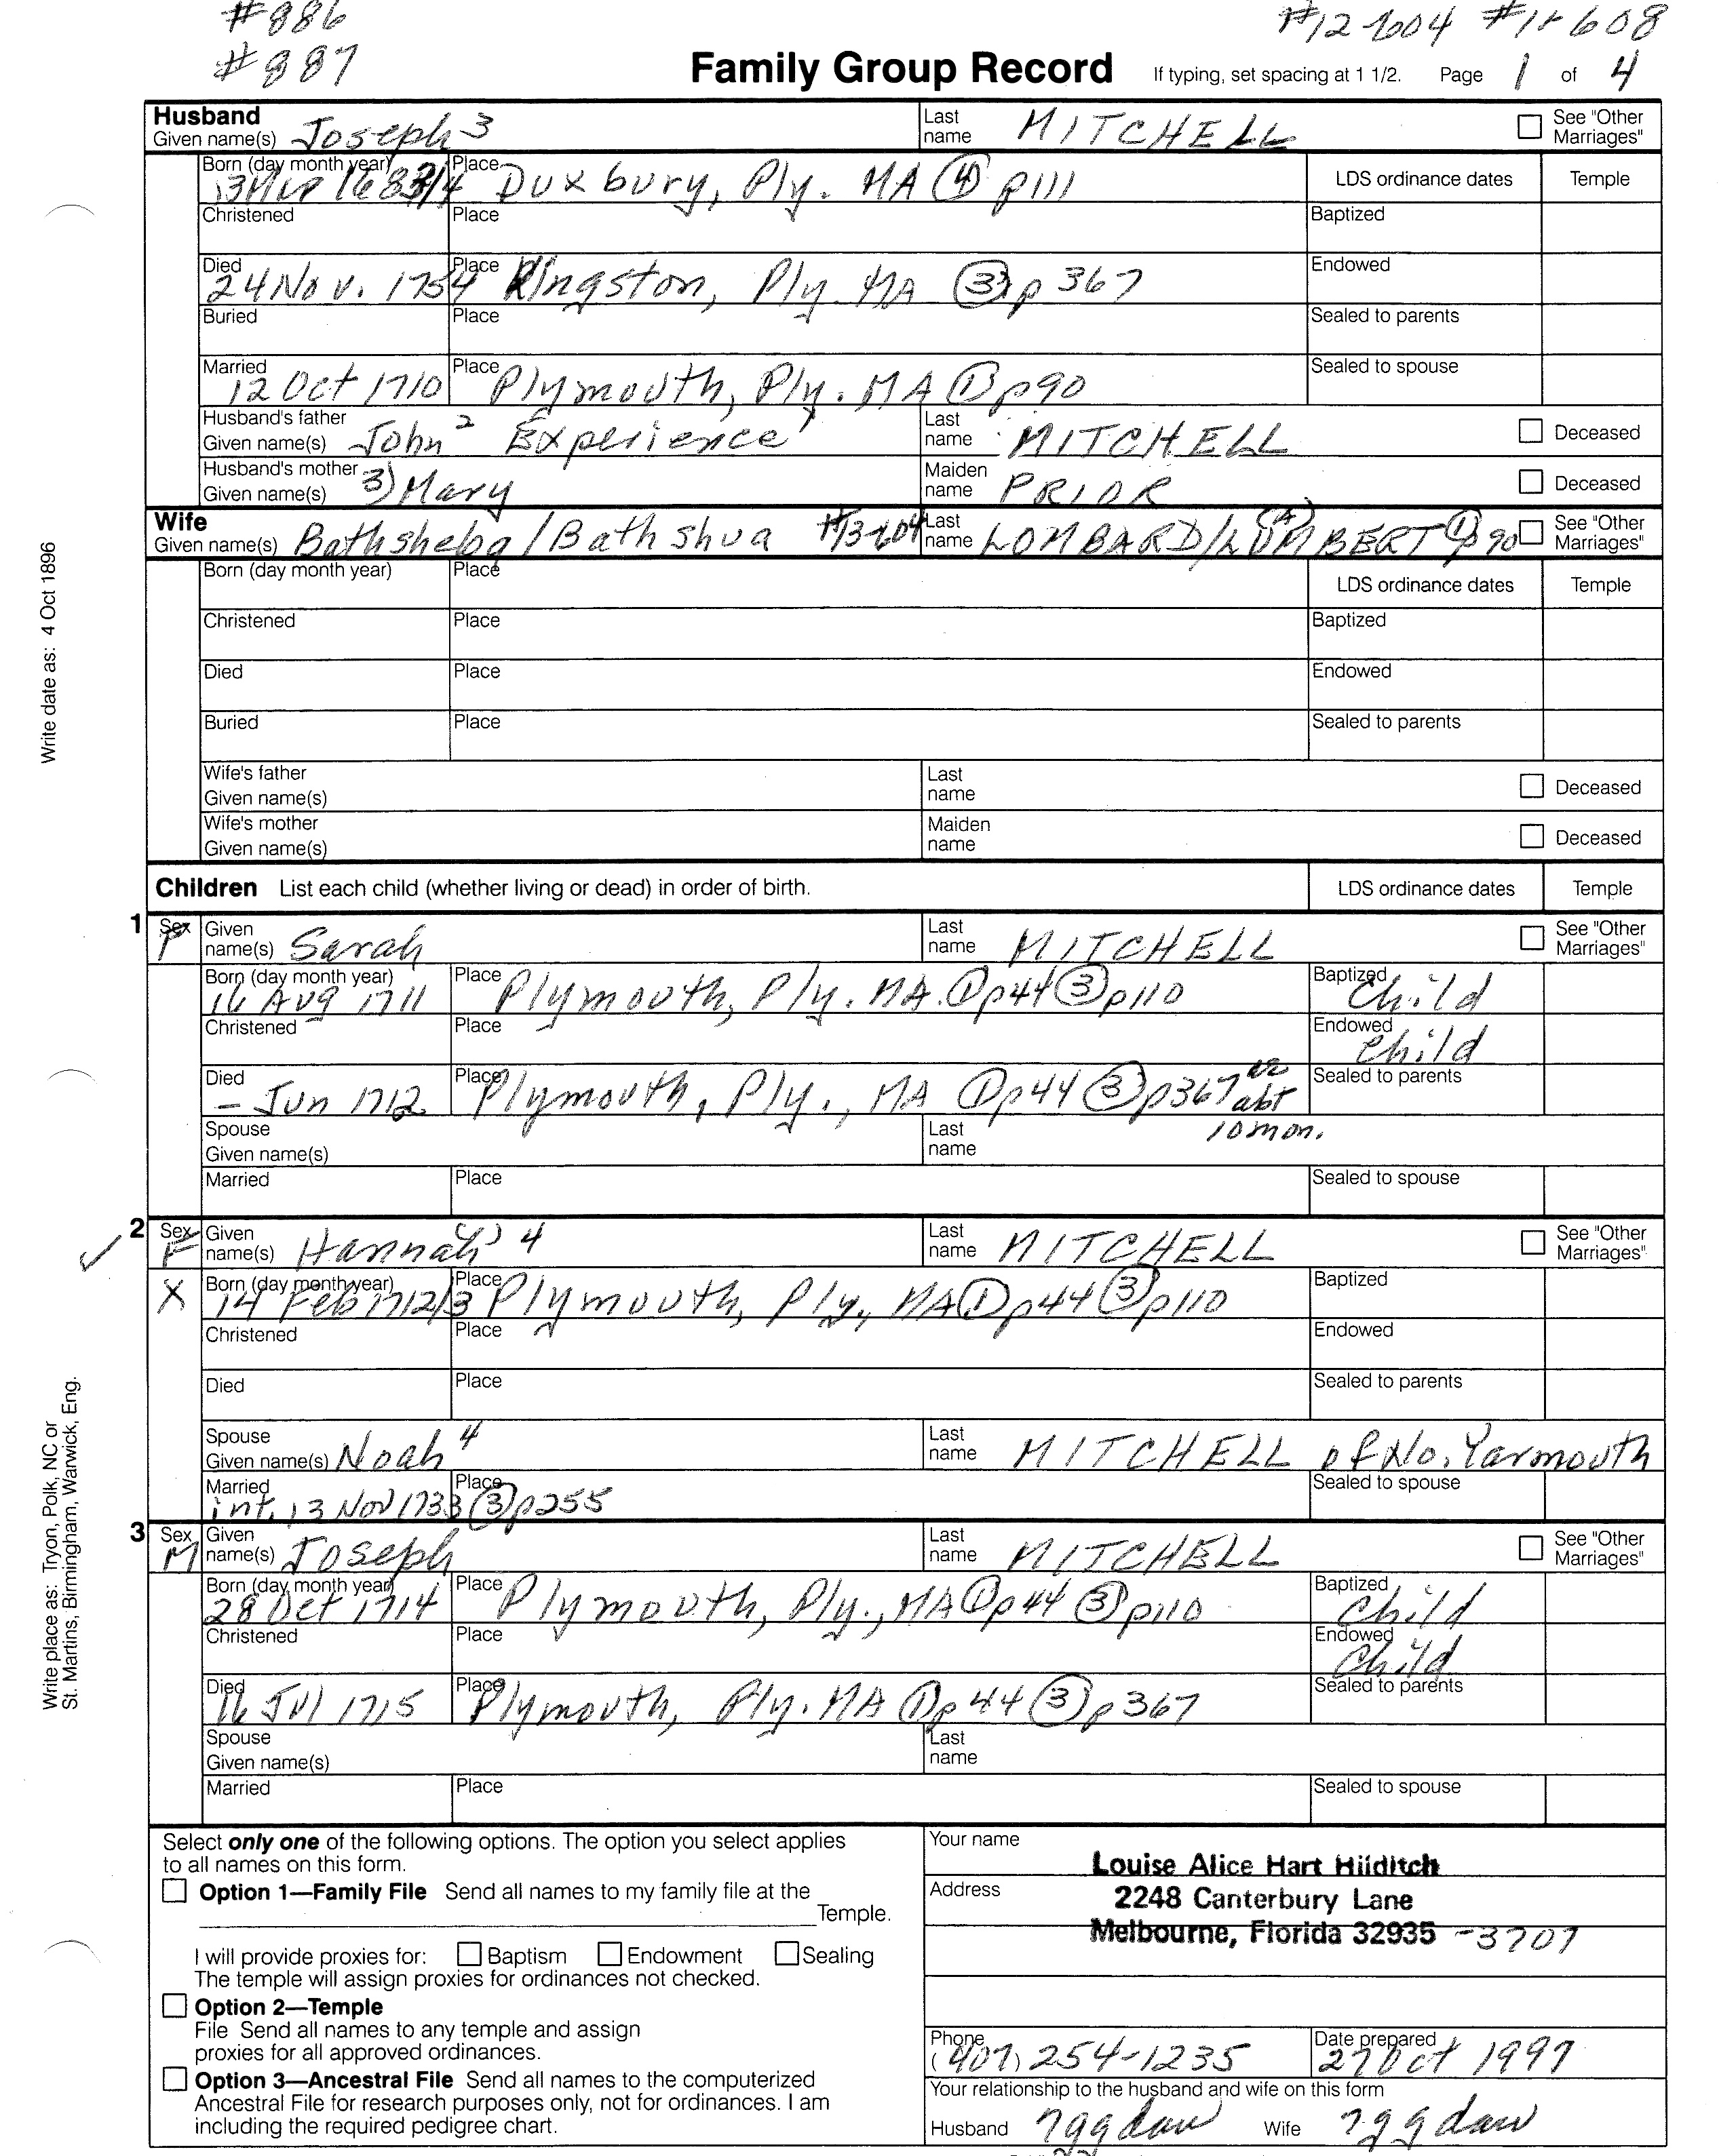 #886 #12-604 #1+608
#887 Family Group Record If typing, set spacing at 1 1/2. Page 1 of 4
Husband
Given name(s) Joseph 3 Last name MITCHELL See "Other Marriages"
Born (day month year) 13 Mar 1683/4 Place Duxbury, Ply. MA (4) p111 LDS ordinance dates Temple
Christened Place Baptized
Died 24 Nov. 1754 Place Kingston, Ply. MA (3) p 367 Endowed
Buried Place Sealed to parents
Married 12 Oct 1710 Place Plymouth, Ply. MA (1) p90 Sealed to spouse
Husband's father Given name(s) John 2 Experience 1 Last name MITCHELL Deceased
Husband's mother Given name(s) 3) Mary Maiden name PRIOR Deceased
Wife
Given name(s) Bathsheba / Bathshua #13-604 Last name LOMBARD/LUMBERT (A) (1) p 90 See "Other Marriages"
Born (day month year) Place LDS ordinance dates Temple
Christened Place Baptized
Died Place Endowed
Buried Place Sealed to parents
Wife's father Given name(s) Last name Deceased
Wife's mother Given name(s) Maiden name Deceased
Children List each child (whether living or dead) in order of birth. LDS ordinance dates Temple
1 Sex F Given name(s) Sarah Last name MITCHELL See "Other Marriages"
Born (day month year) 16 Aug 1711 Place Plymouth, Ply. MA. (1) p44 (3) p110 Baptized Child
Christened Place Endowed Child
Died - Jun 1712 Place Plymouth, Ply., MA (1) p44 (3) p367 abt Sealed to parents
10 mon.
Spouse Given name(s) Last name
Married Place Sealed to spouse
2 Sex F Given name(s) Hannah 4 Last name MITCHELL See "Other Marriages"
X Born (day month year) 14 Feb 1712/3 Place Plymouth, Ply., MA (1) p44 (3) p110 Baptized
Christened Place Endowed
Died Place Sealed to parents
Spouse Given name(s) Noah 4 Last name MITCHELL of No. Yarmouth
Married int. 13 Nov 1733 Place (3) p255 Sealed to spouse
3 Sex M Given name(s) Joseph Last name MITCHELL See "Other Marriages"
Born (day month year) 28 Oct 1714 Place Plymouth, Ply., MA (1) p44 (3) p110 Baptized Child
Christened Place Endowed Child
Died 16 Jul 1715 Place Plymouth, Ply. MA (1) p44 (3) p 367 Sealed to parents
Spouse Given name(s) Last name
Married Place Sealed to spouse
Select only one of the following options. The option you select applies
to all names on this form.
Option 1—Family File Send all names to my family file at the
Temple.
I will provide proxies for: Baptism Endowment Sealing
The temple will assign proxies for ordinances not checked.
Option 2—Temple
File Send all names to any temple and assign
proxies for all approved ordinances.
Option 3—Ancestral File Send all names to the computerized
Ancestral File for research purposes only, not for ordinances. I am
including the required pedigree chart.
Your name Louise Alice Hart Hilditch
Address 2248 Canterbury Lane
Melbourne, Florida 32935 -3707
Phone (407) 254-1235 Date prepared 27 Oct 1997
Your relationship to the husband and wife on this form
Husband 7ggdau Wife 7ggdau
Write date as: 4 Oct 1896
Write place as: Tryon, Polk, NC or
St. Martins, Birmingham, Warwick, Eng.